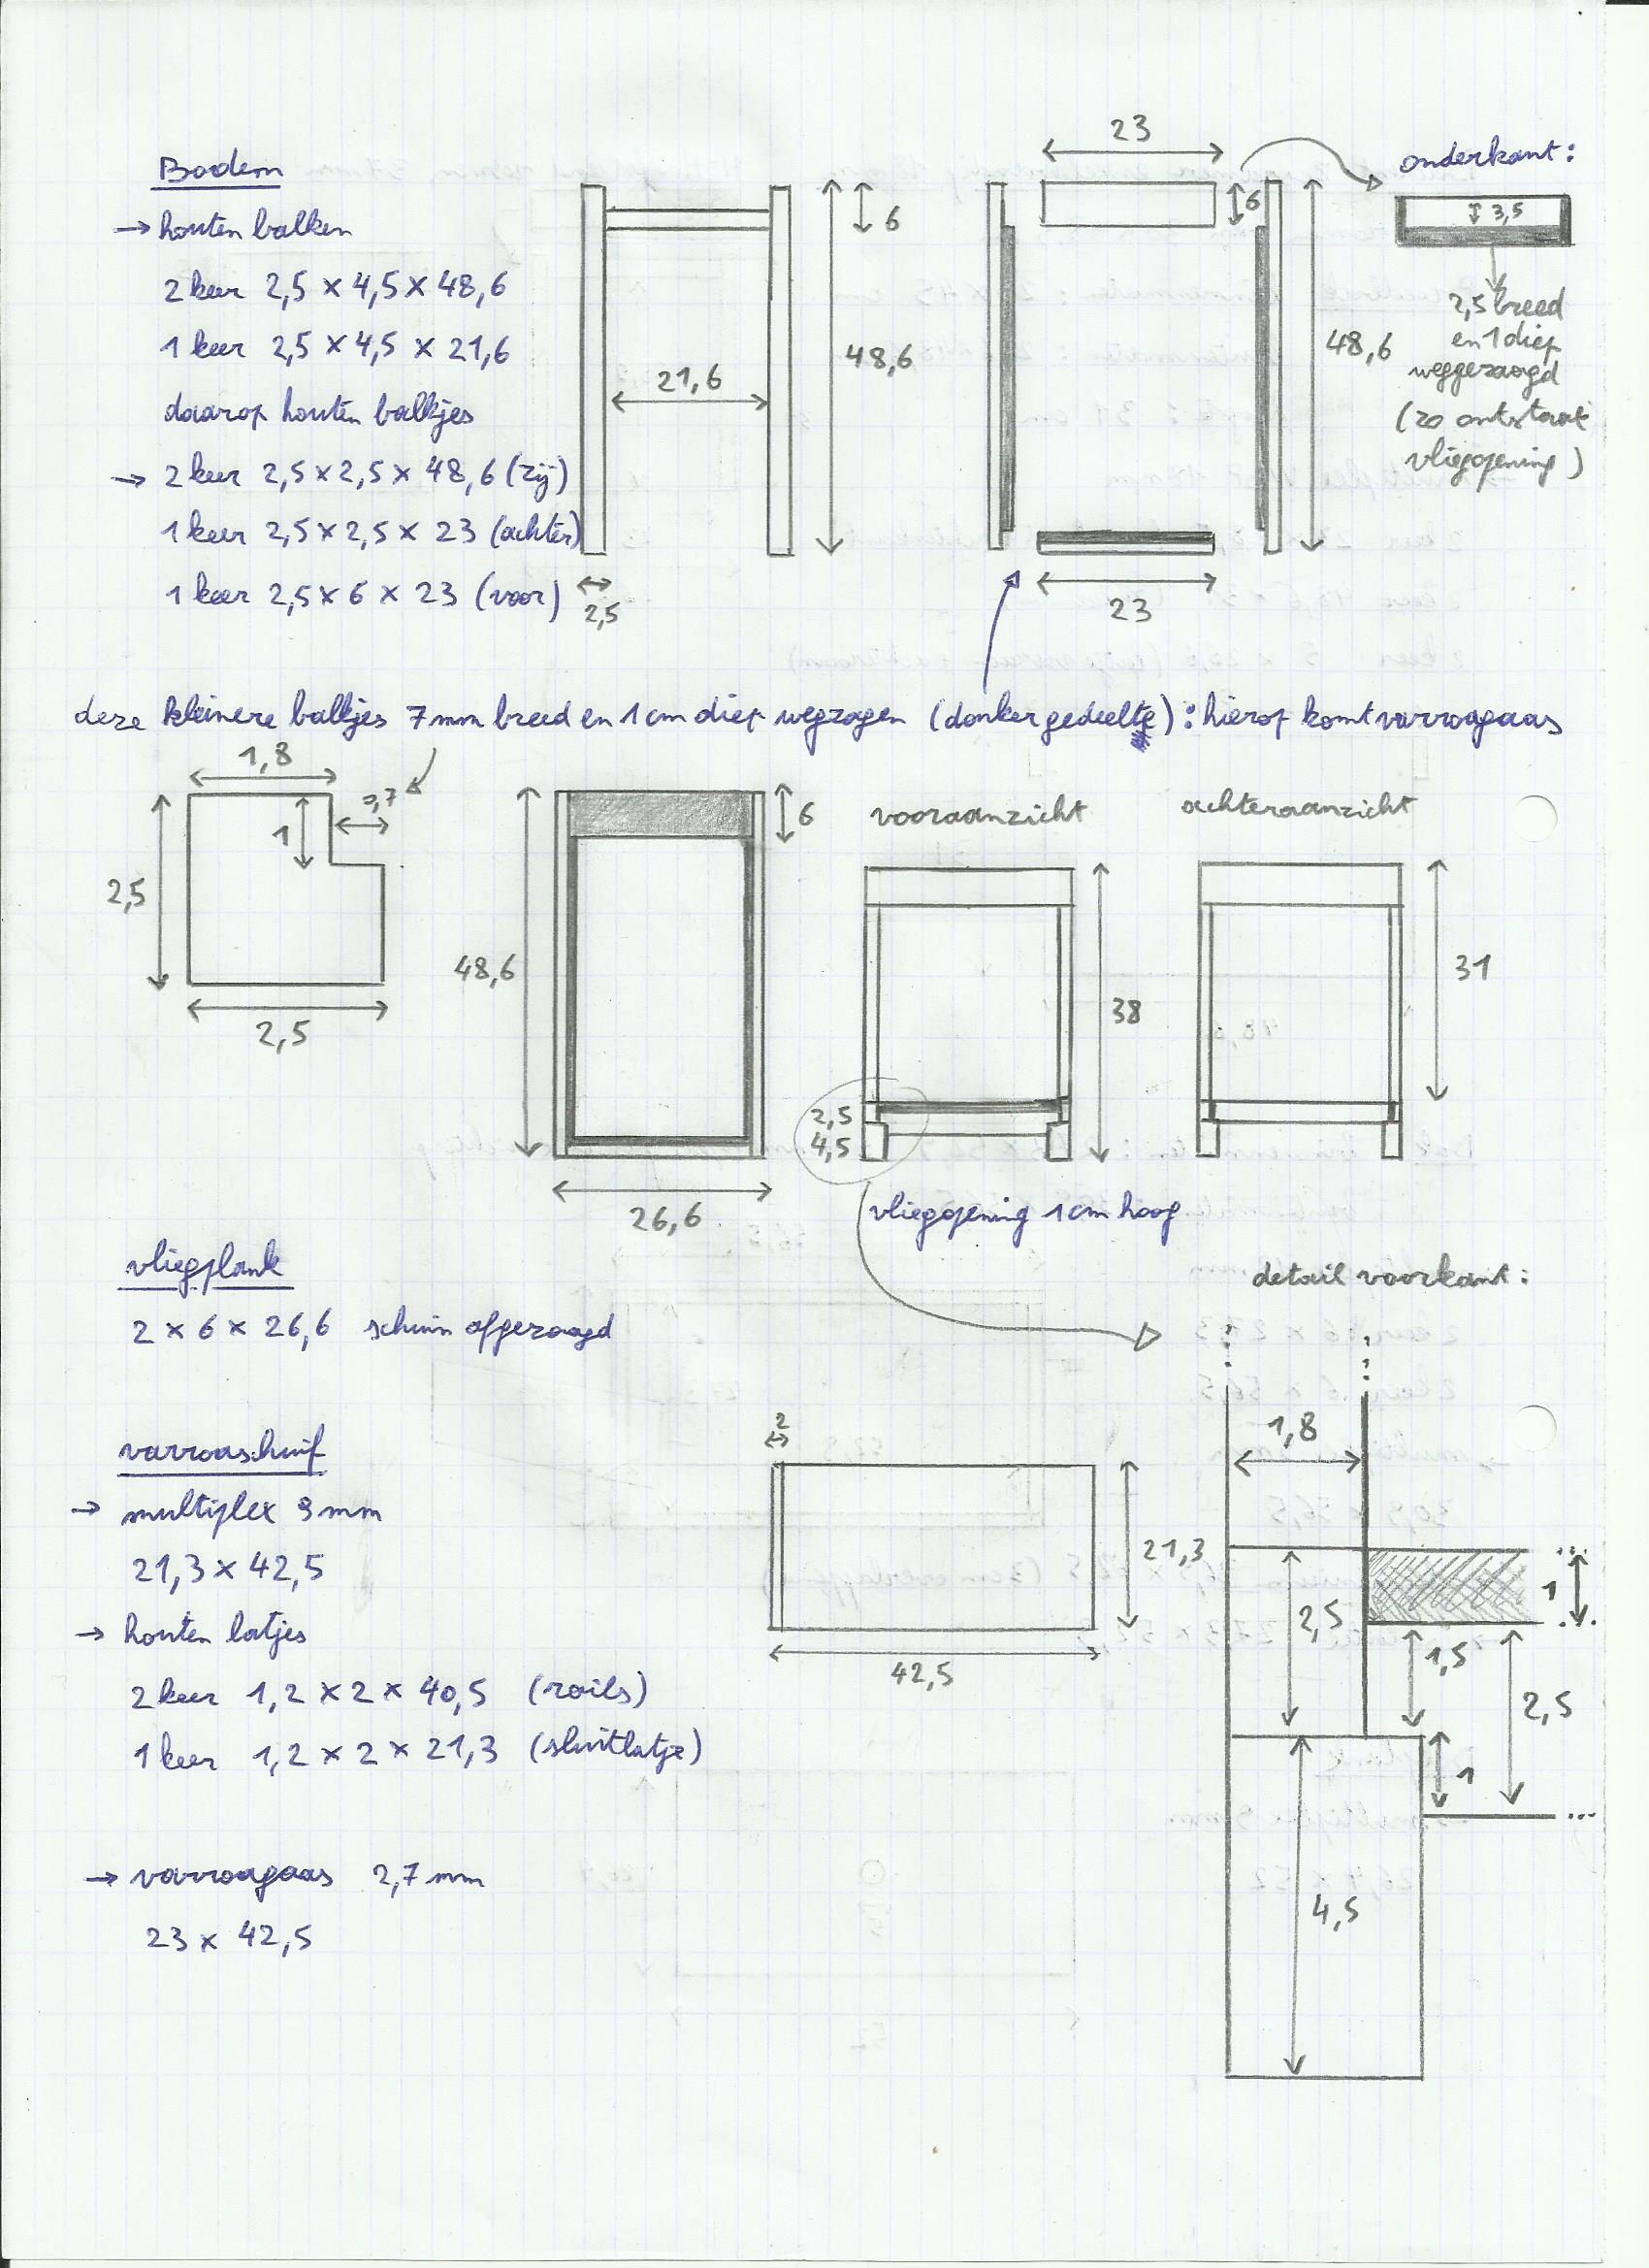 Bodem
→ houten balken
2 keer 2,5 × 4,5 × 48,6
1 keer 2,5 × 4,5 × 21,6
daarop houten balkjes
→ 2 keer 2,5 × 2,5 × 48,6 (zij)
1 keer 2,5 × 2,5 × 23 (achter)
1 keer 2,5 × 6 × 23 (voor)
21,6
6
48,6
2,5
23
6
48,6
23
onderkant:
3,5
2,5 breed
en 1 diep
weggezaagd
(zo ontstaat
vliegopening)
deze kleinere balkjes 7 mm breed en 1 cm diep wegzagen (donker gedeelte): hierop komt varroagaas
1,8
0,7
1
2,5
2,5
6
48,6
26,6
vooraanzicht
38
2,5
4,5
achteraanzicht
31
vliegopening 1 cm hoog
vliegplank
2 × 6 × 26,6 schuin afgezaagd
detail voorkant:
1,8
2,5
1
1,5
2,5
1
4,5
varroaschuif
→ multiplex 9 mm
21,3 × 42,5
→ houten latjes
2 keer 1,2 × 2 × 40,5 (rails)
1 keer 1,2 × 2 × 21,3 (sluitlatje)
2
21,3
42,5
→ varroagaas 2,7 mm
23 × 42,5